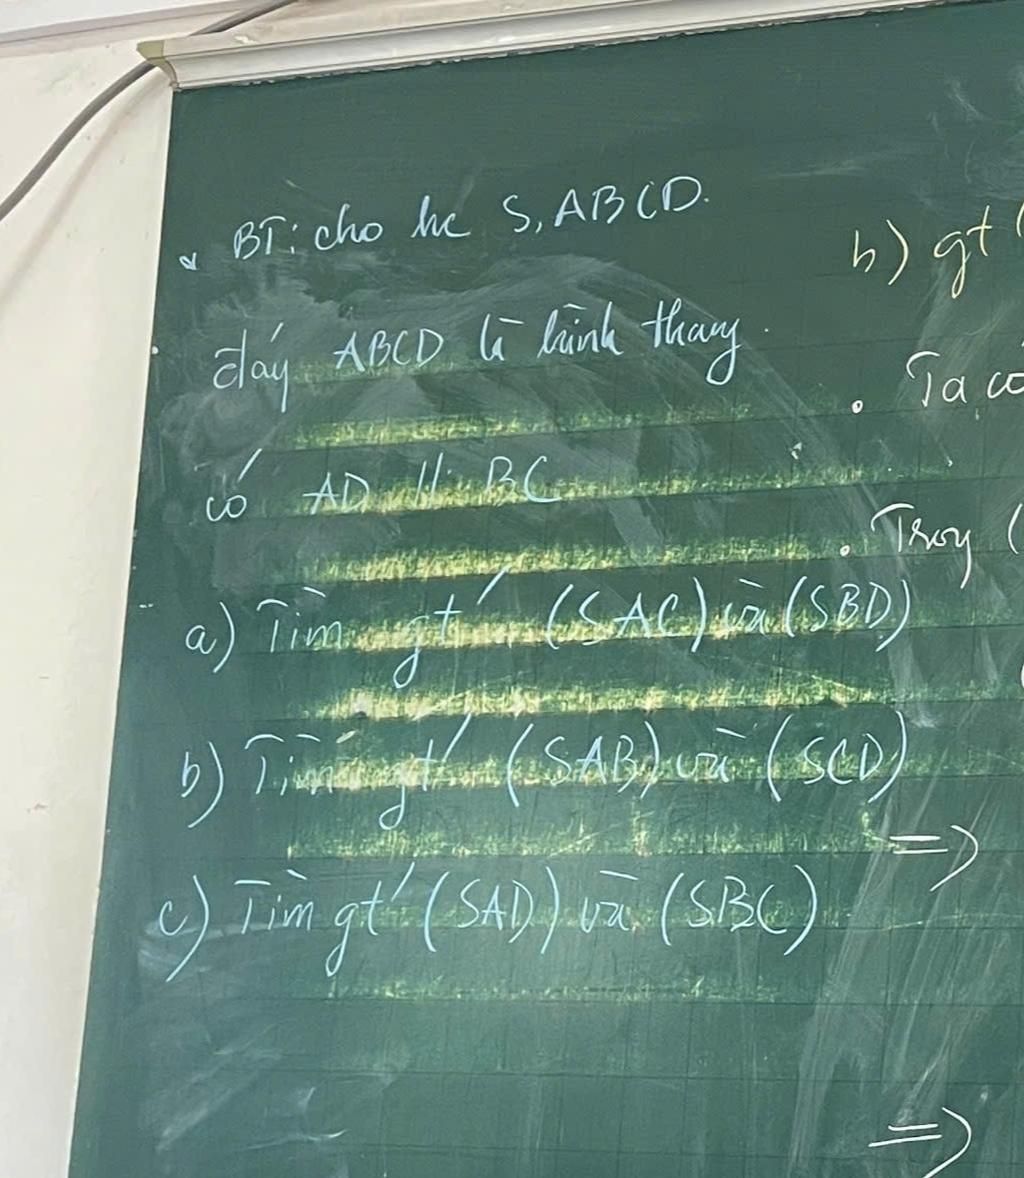 BT: cho hc S.ABCD.
đáy ABCD là hình thang.
có AD // BC
a) Tìm gt' (SAC) và (SBD)
b) Tìm gt' (SAB) và (SCD)
c) Tìm gt' (SAD) và (SBC)
b) gt (
. Ta có
. Trong (
=>
=>